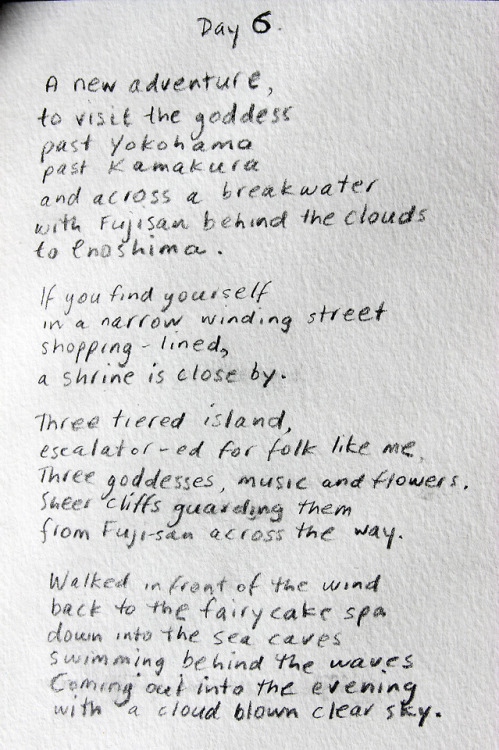 Day 6.
A new adventure,
to visit the goddess
past Yokohama
past Kamakura
and across a breakwater
with Fujisan behind the clouds
to Enoshima.
If you find yourself
in a narrow winding street
shopping-lined,
a shrine is close by.
Three tiered island,
escalator-ed for folk like me.
Three goddesses, music and flowers.
Sheer cliffs guarding them
from Fuji-san across the way.
Walked in front of the wind
back to the fairy cake spa
down into the sea caves
swimming behind the waves
Coming out into the evening
with a cloud blown clear sky.